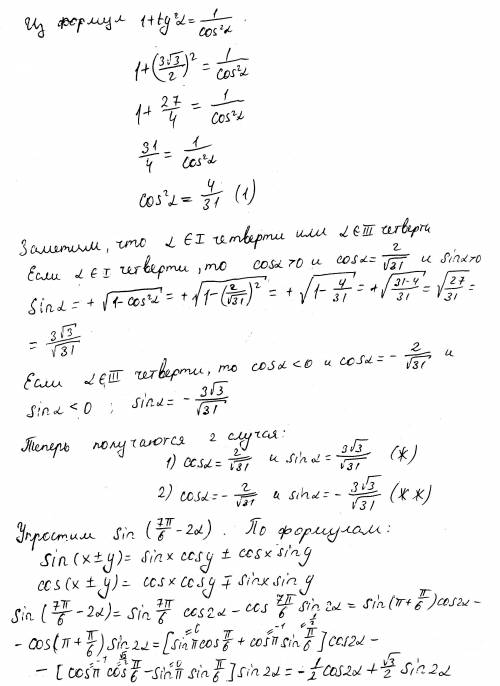 Из формул 1+tg²α = 1/cos²α
1+(3√3/2)² = 1/cos²α
1+ 27/4 = 1/cos²α
31/4 = 1/cos²α
cos²α = 4/31 (1)
Заметим, что α ∈ I четверти или α ∈ III четверти
Если α ∈ I четверти, то cosα>0 и cosα = 2/√31 и sinα>0
sinα = +√(1-cos²α) = +√(1-(2/√31)²) = +√(1-4/31) = +√((31-4)/31) = √(27/31) =
= 3√3/√31
Если α ∈ III четверти, то cosα<0 и cosα = -2/√31 и
sinα<0 ; sinα = -3√3/√31
Теперь получаются 2 случая:
1) cosα = 2/√31 и sinα = 3√3/√31 (*)
2) cosα = -2/√31 и sinα = -3√3/√31 (**)
Упростим sin(7π/6 - 2α). По формулам:
sin(x±y) = sinx cosy ± cosx siny
cos(x±y) = cosx cosy ∓ sinx siny
sin(7π/6 - 2α) = sin 7π/6 cos2α - cos 7π/6 sin2α = sin(π+π/6)cos2α -
- cos(π+π/6) sin2α = [sinπ cos π/6 + cosπ sin π/6] cos2α -
- [cosπ cos π/6 - sinπ sin π/6] sin2α = -1/2 cos2α + √3/2 sin2α